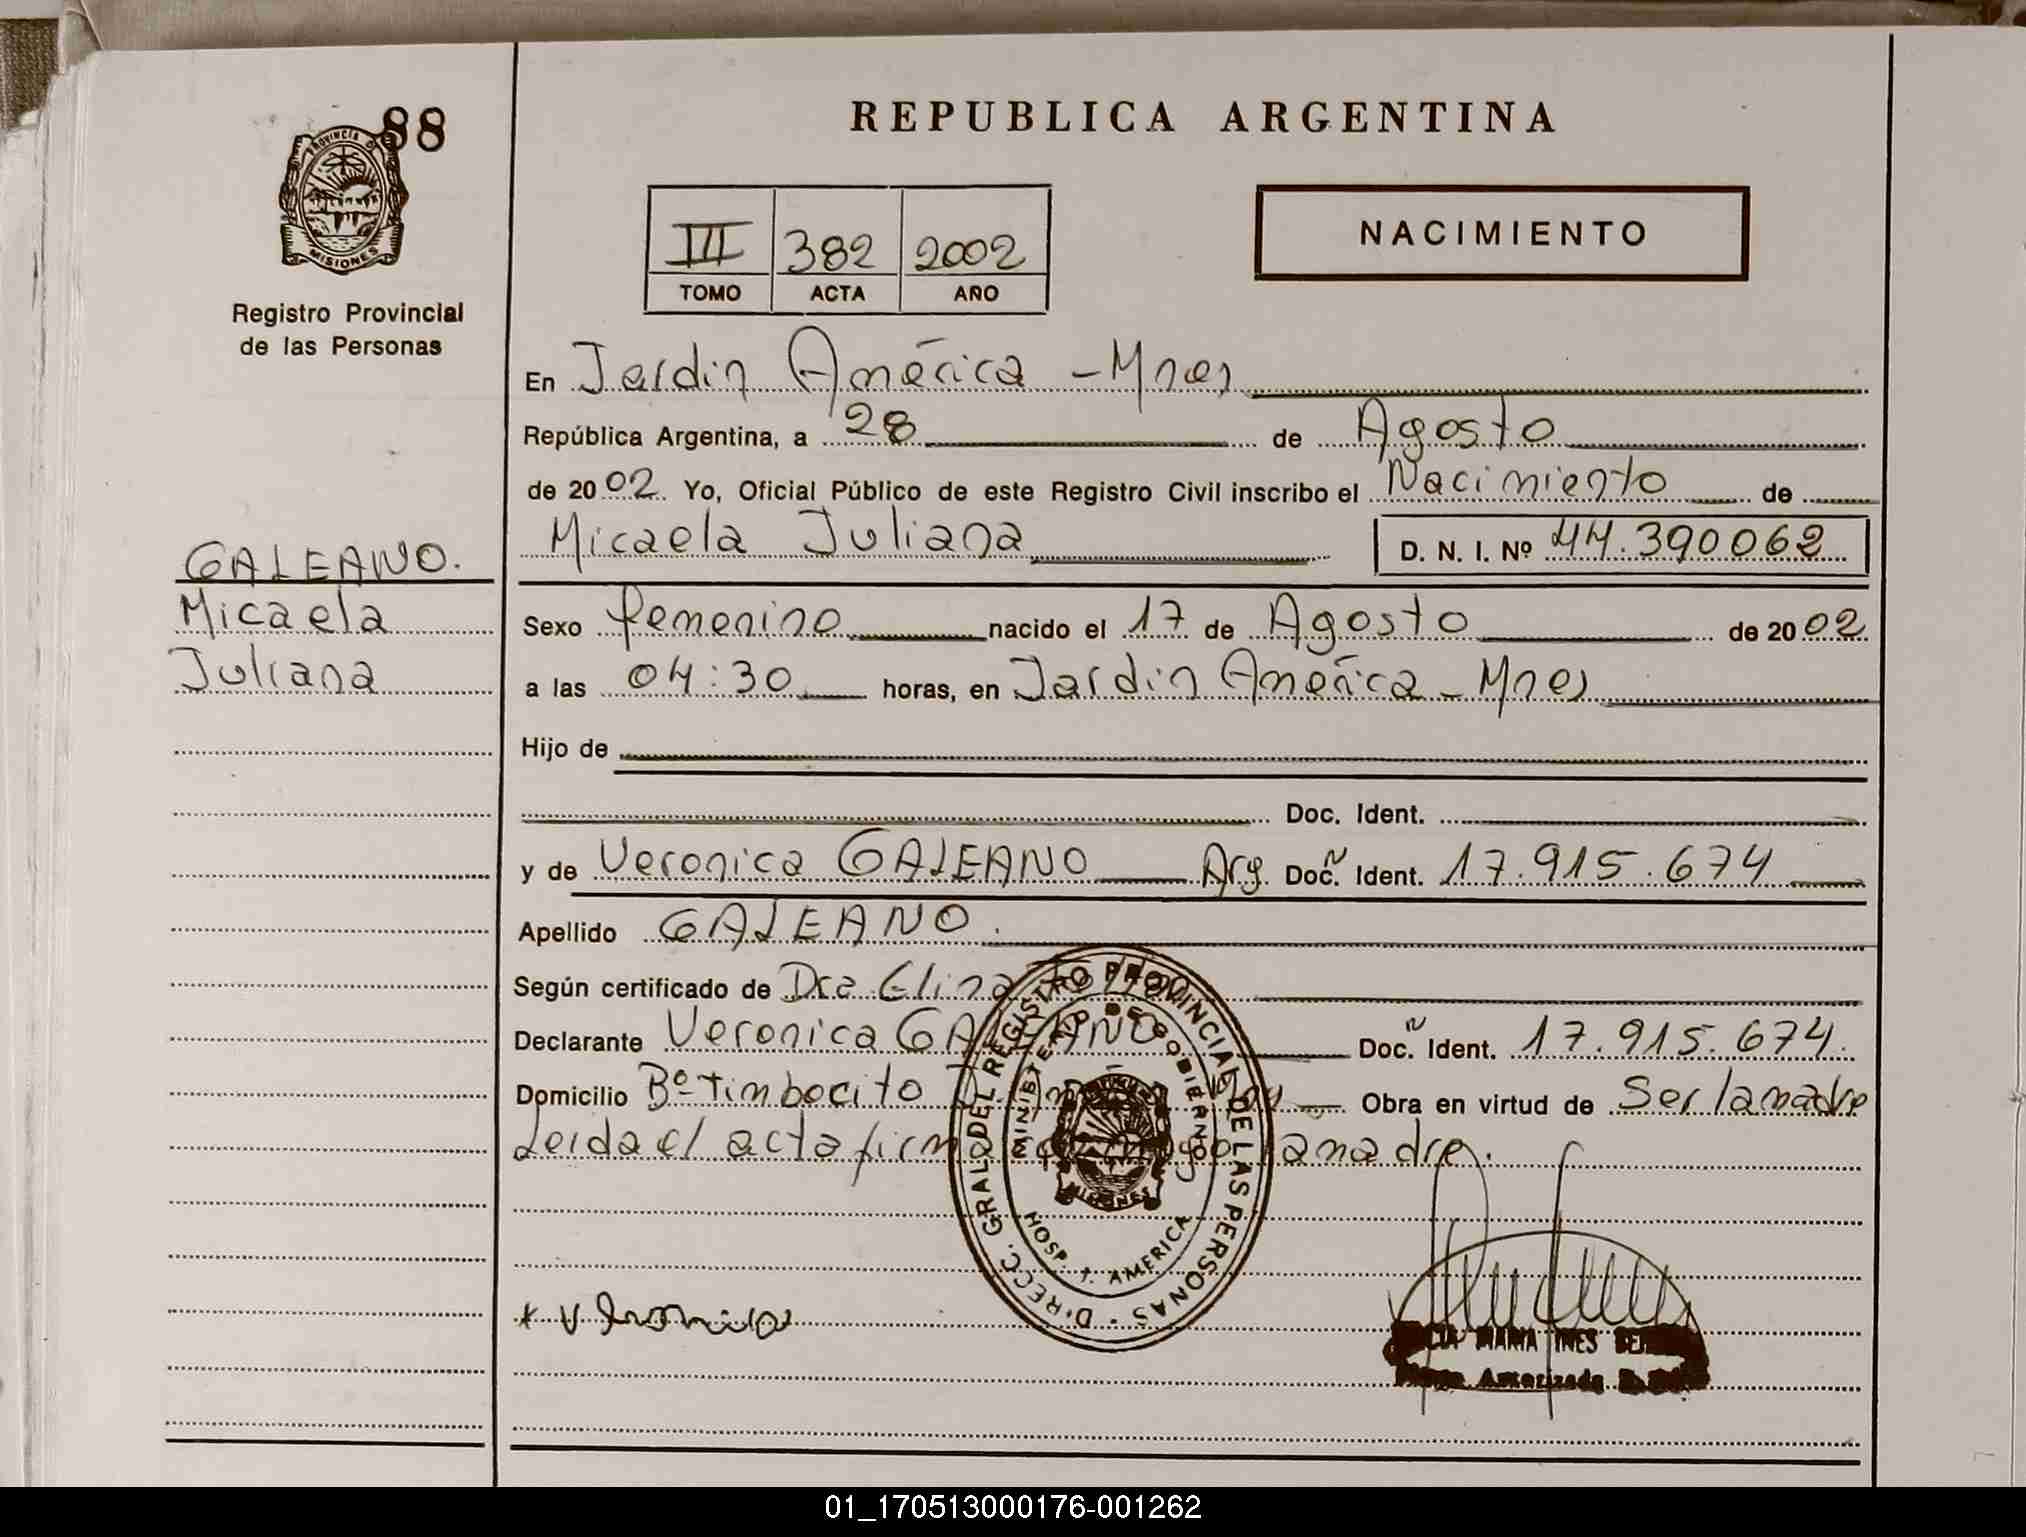 88
REPUBLICA ARGENTINA
PROVINCIA D
MISIONES
Registro Provincial
de las Personas
III 382 2002
TOMO ACTA AÑO
NACIMIENTO
En Jardin América - Mnes
República Argentina, a 28 de Agosto
de 2002. Yo, Oficial Público de este Registro Civil inscribo el Nacimiento de
Micaela Juliana D. N. I. Nº 44.390062
GALEANO.
Micaela
Juliana
Sexo femenino nacido el 17 de Agosto de 2002
a las 04:30 horas, en Jardin América - Mnes
Hijo de
Doc. Ident.
y de Veronica GALEANO Arg. Doc. Ident. 17.915.674
Apellido GALEANO.
Según certificado de Dra Elina
Declarante Veronica GALEANO Doc. Ident. 17.915.674.
Domicilio Bº Timbocito Obra en virtud de Ser la madre
Leida el acta firma la madre.
DIRECC. GRAL. DEL REGISTRO PROVINCIAL DE LAS PERSONAS
MINISTERIO DE GOBIERNO
MISIONES
HOSP. J. AMERICA
MARIA INES
Autorizada
01_170513000176-001262